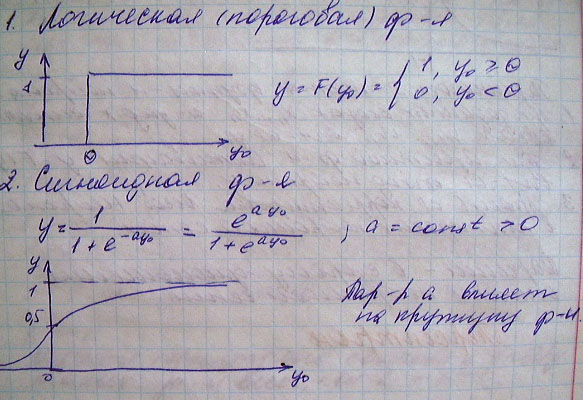 1. Логическая (пороговая) ф-я
y
1
y = F(y₀) = { 1, y₀ ≥ Θ
0, y₀ < Θ
Θ
y₀
2. Сигмоидная ф-я
y = 1 / (1 + e^(-ay₀)) = e^(ay₀) / (1 + e^(ay₀)) , a = const > 0
y
1
0,5
0
y₀
Пар-р a влияет
на крутизну ф-и.